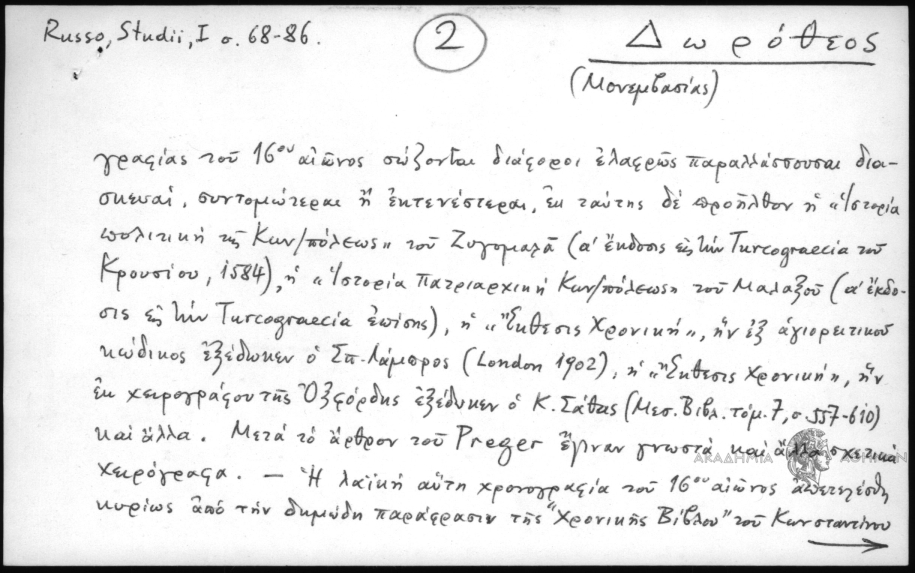 Russo, Studii, I σ. 68-86.
2
Δωρόθεος
(Μονεμβασίας)
γραφίας τοῦ 16ου αἰῶνος σώζονται διάφοροι ἐλαφρῶς παραλλάσσουσαι δια-
σκευαί, συντομώτεραι ἢ ἐκτενέστεραι, ἐκ ταύτης δὲ προῆλθον ἡ «Ἱστορία
πολιτικὴ τῆς Κων/πόλεως» τοῦ Ζυγομαλᾶ (α' ἔκδοσις εἰς τὴν Turcograecia τοῦ
Κρουσίου, 1584), ἡ «Ἱστορία Πατριαρχικὴ Κων/πόλεως» τοῦ Μαλαξοῦ (α' ἔκδο-
σις εἰς τὴν Turcograecia ἐπίσης), ἡ «Ἔκθεσις Χρονική», ἣν ἐξ ἁγιορειτικοῦ
κώδικος ἐξέδωκεν ὁ Σπ. Λάμπρος (London 1902), ἡ «Ἔκθεσις χρονική», ἣν
ἐκ χειρογράφου τῆς Ὀξφόρδης ἐξέδωκεν ὁ Κ. Σάθας (Μεσ. Βιβλ. τόμ. 7, σ. 557-610)
καὶ ἄλλα. Μετὰ τὸ ἄρθρον τοῦ Preger ἔγιναν γνωστὰ καὶ ἄλλα σχετικὰ
χειρόγραφα. — Ἡ λαϊκὴ αὕτη χρονογραφία τοῦ 16ου αἰῶνος ἀπετελέσθη
κυρίως ἀπὸ τὴν δημώδη παράφρασιν τῆς "Χρονικῆς Βίβλου" τοῦ Κωνσταντίνου
ΑΚΑΔΗΜΙΑ ΑΘΗΝΩΝ